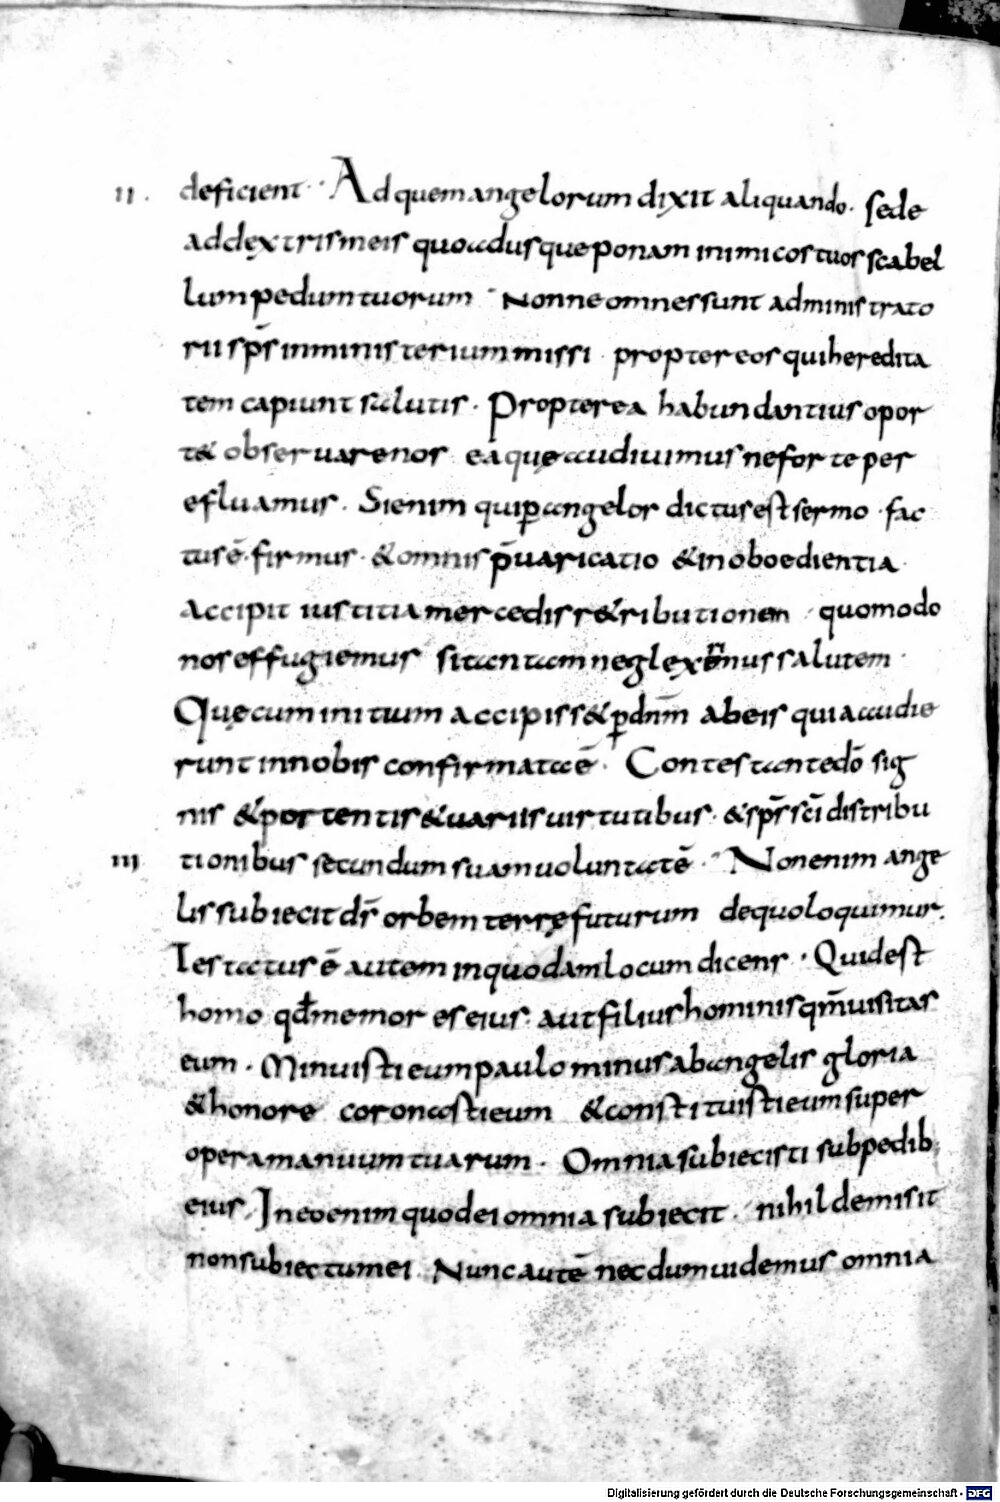 II. deficient · Ad quem angelorum dixit aliquando · sede
ad dextris meis quo adusque ponam inimicos tuos scabel
lum pedum tuorum · Nonne omnes sunt administrato
rii sp̄s in ministerium missi · propter eos qui heredita
tem capiunt salutis · Propterea habundantius opor
t& observare nos ea quę audiuimus ne forte per
efluamus · Si enim qui ꝑ angelos dictus est sermo · fac
tus ē · firmus · & omnis p̄uaricatio & inoboedientia ·
accipit iustitia mercedis r&ributionem · quomodo
nos effugiemus si tantam neglexerimus salutem ·
Quę cum initium accipiss& ꝑ dn̄m ab eis qui audie
runt in nobis confirmata ē · Contestante dō sig
nis & portentis & uariis uirtutibus · & sp̄s sc̄i distribu
III tionibus secundum suam uoluntatē · Non enim ange
lis subiecit ds̄ orbem terrę futurum de quo loquimur ·
Testatus ē autem in quodam locum dicens · Quid est
homo qđ memor es eius · aut filius hominis qm̄ uisitas
eum · Minuisti eum paulo minus ab angelis gloria
& honore coronasti eum & constituisti eum super
opera manuum tuarum · Omnia subiecisti sub pedib;
eius · In eo enim quod ei omnia subiecit · nihil demisit
non subiectum ei · Nunc autē necdum uidemus omnia
Digitalisierung gefördert durch die Deutsche Forschungsgemeinschaft - DFG